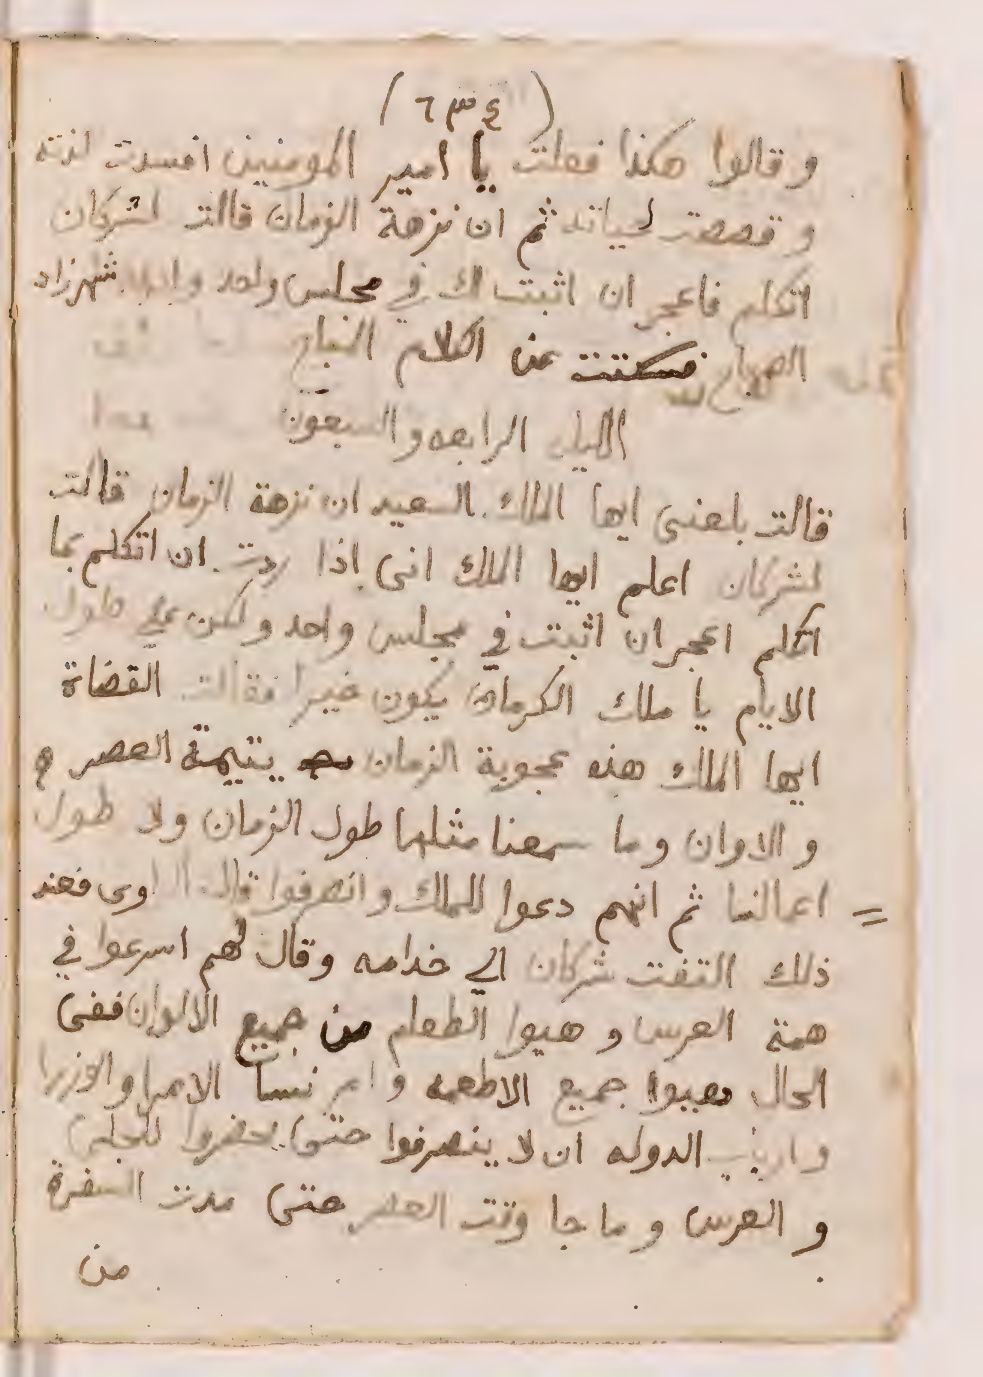 (٦٣٤)
وقالوا هكذا فعلت يا امير المومنين افسدت لذته
و قصصت حياته ثم ان نزهة الزمان قالت لشركان
اتكلم فاعجر ان اثبت لك في مجلس واحد شهرزاد
الصباح فسكتت عن الكلام المباح
الليله الرابعه والسبعون
قالت بلغنى ايها الملك السعيد ان نزهة الزمان قالت
لشركان اعلم ايها الملك انى اذا ردت ان اتكلم بما
اتكلم اعجر ان اثبت في مجلس واحد ولكن على طول
الايام يا ملك الكرمان يكون خيرا فقالت القضاة
ايها الملك هذه عجوبة الزمان يتيمة العصر و
و الاوان وما سمعنا مثلها طول الزمان ولا طول
اعمالنا ثم انهم دعوا للملك وانصرفوا قال الراوى فعند
ذلك التفت شركان الي خدامه وقال لهم اسرعوا في
همة العرس و هيوا الطعام من جميع الالوان ففى
الحال هيوا جميع الاطعمه و امر نسا الامرا والوزرا
وارباب الدوله ان لا ينصرفوا حتى يحضروا للجلى
و العرس و ما جا وقت العصر حتى مدت السفرة
من